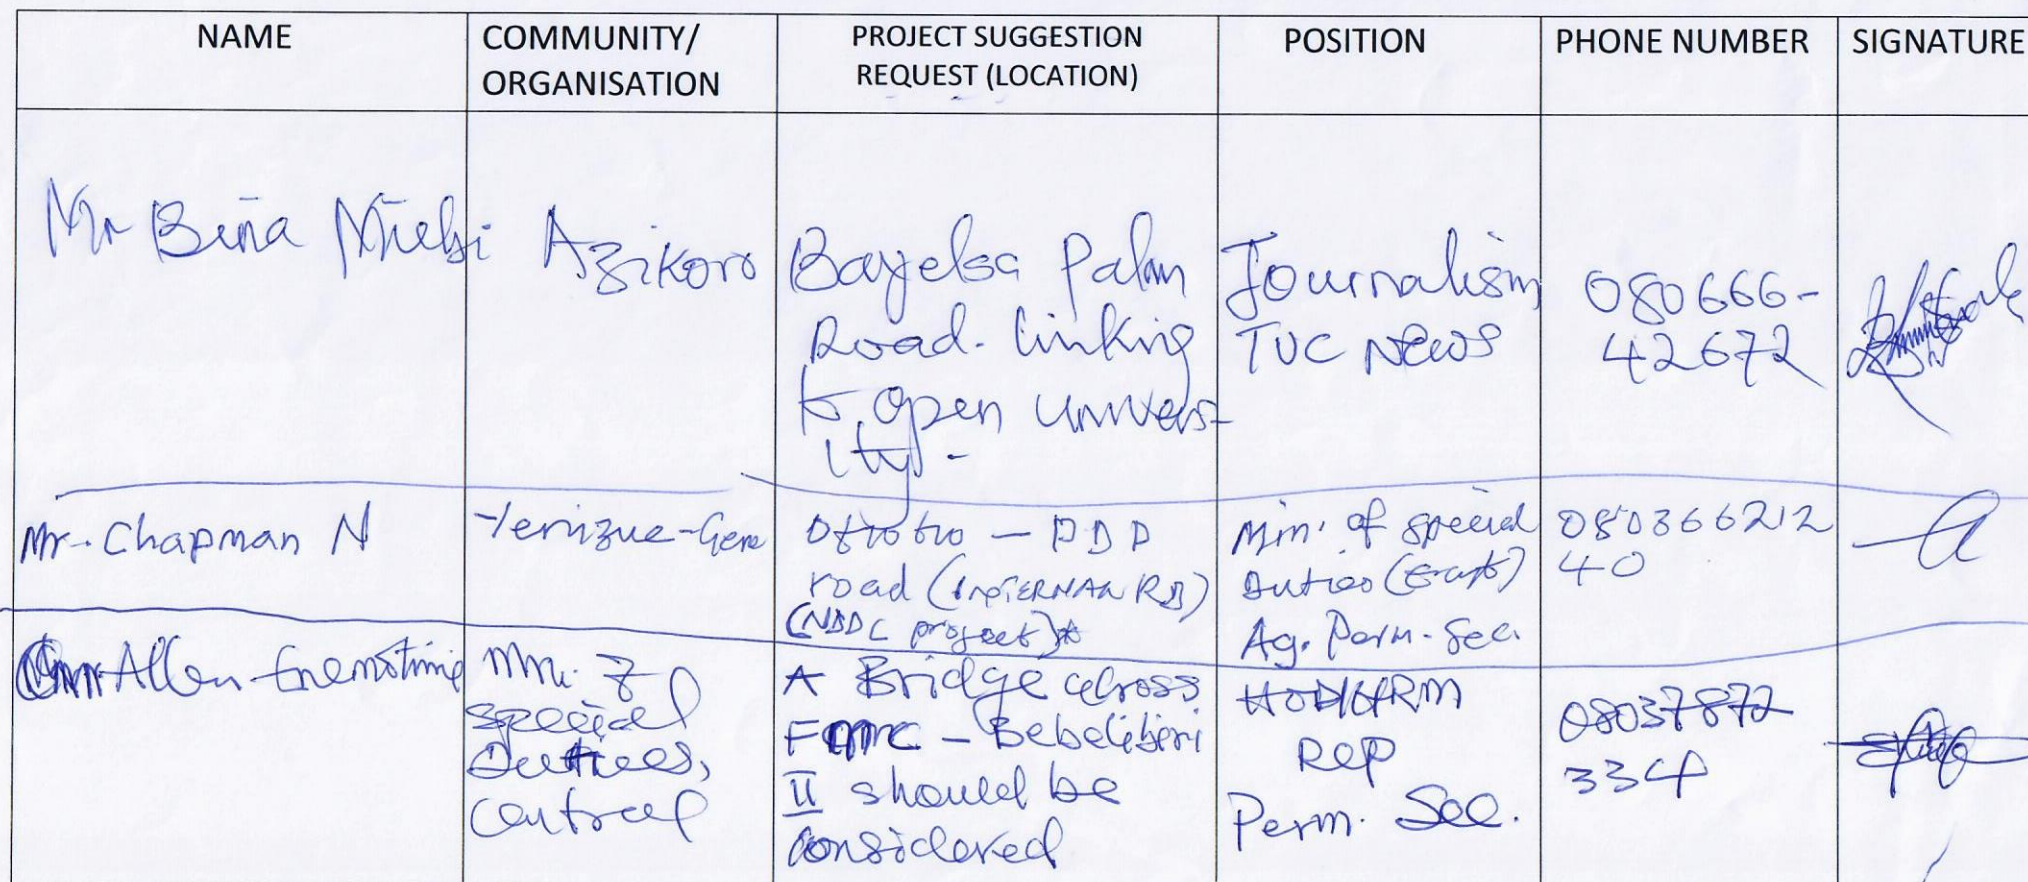 NAME
COMMUNITY/
ORGANISATION
PROJECT SUGGESTION
REQUEST (LOCATION)
POSITION
PHONE NUMBER
SIGNATURE
Mr Bina
Azikoro
Bayelsa Palm
Road. linking
to open univers-
ity -
Journalism
TVC News
080666-
42672
Mr. Chapman N
Yenizue-Gene
— DDD
road
(NDDC project)
Min. of special
Duties (East)
Ag. Perm. Sec.
080366212
40
Allen
Min. of
special
Duties,
Central
A Bridge across
FMC - Bebelibiri
II should be
considered
HOD/HRM
Rep
Perm. Sec.
08037872
334